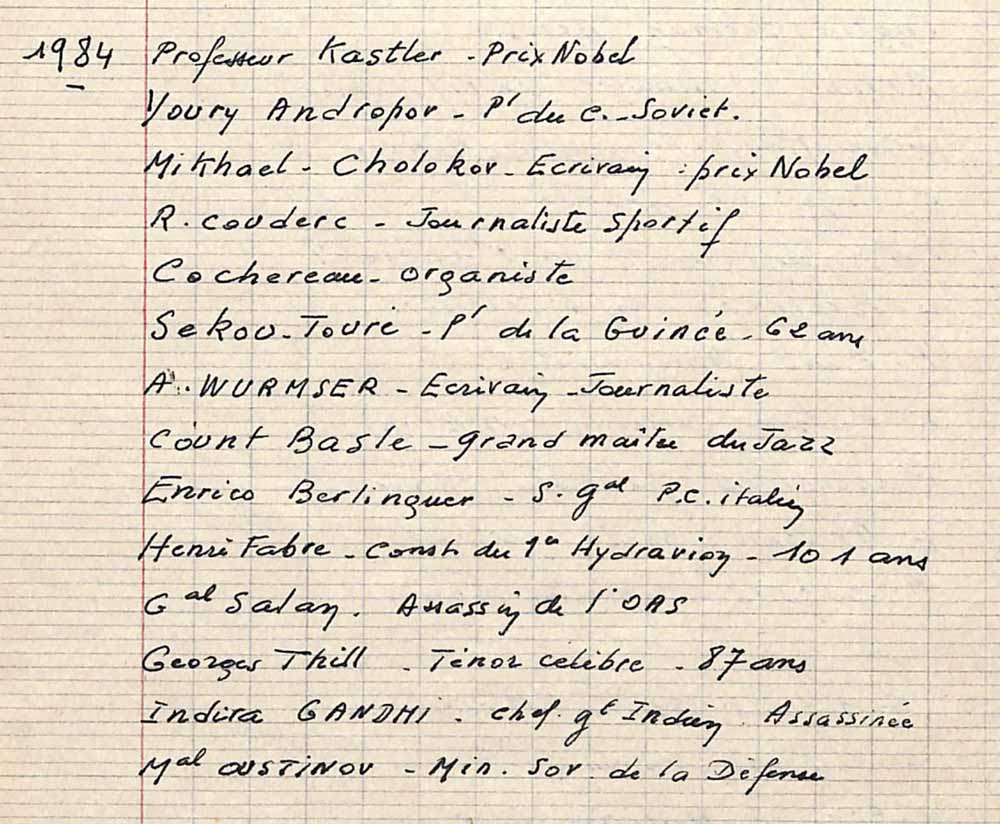 1984 Professeur Kastler - Prix Nobel
Youry Andropov - Pt du C. Soviet.
Mikhael - Cholokov - Ecrivain : prix Nobel
R. Couderc - Journaliste Sportif
Cochereau - organiste
Sekou-Touré - Pt de la Guinée - 62 ans
A. WURMSER - Ecrivain - Journaliste
Count Basie - grand maître du Jazz
Enrico Berlinguer - S. gal P.C. italien
Henri Fabre - Const. du 1er Hydravion - 101 ans
Gal Salan. Assassin de l'OAS
Georges Thill - Ténor célèbre - 87 ans
Indira GANDHI - chef. gt Indien. Assassinée
Mal OUSTINOV - Min. Sov. de la Défense